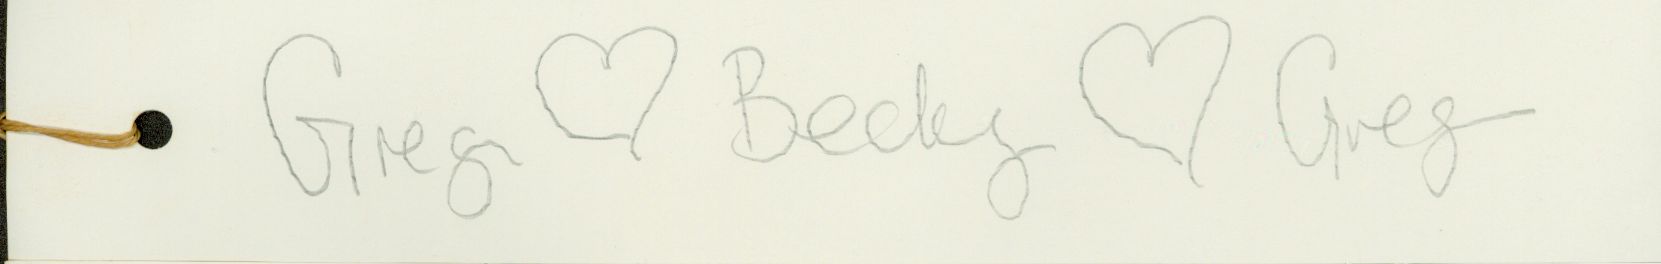 Greg ♡ Becky ♡ Greg